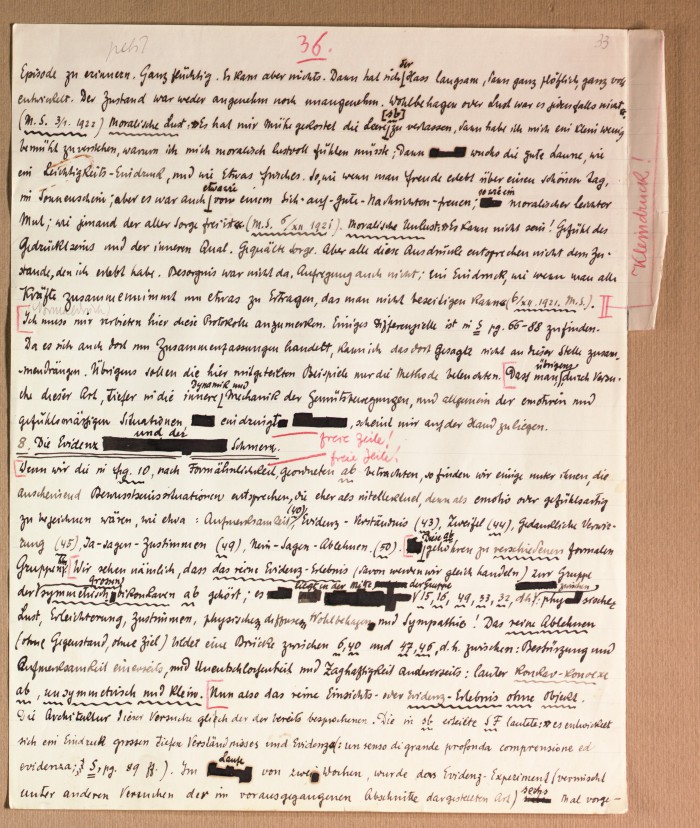 petit
36.
33
Episode zu erinnern. Ganz flüchtig. Es kam aber nichts. Dann hat sich der Hass langsam, dann ganz plötzlich, ganz voll
entwickelt. Der Zustand war weder angenehm noch unangenehm. Wohlbehagen oder Lust war es jedenfalls nicht
(M.S. 3/1. 1922) Moralische Lust. Es hat mir Mühe gekostet die [sb] zu verlassen, dann habe ich mich ein klein wenig
bemüht zu verstehen, warum ich mich moralisch lustvoll fühlen müsste. Dann wuchs die gute Laune, wie
ein Leichtigkeits-Eindruck, und wie etwas frisches. So, wie wenn man Freude erlebt über einen schönen Tag,
im Sonnenschein; aber es war auch etwas wie von einem Sich-auf-gute-Nachrichten-freuen; so wie ein moralischer leichter
Mut; wie jemand der aller Sorge frei ist (M.S. 6/XII 1921). Moralische Unlust. Es kann nicht sein! Gefühl des
Gedrücktseins und der inneren Qual. Gequälte Sorge. Aber alle diese Ausdrücke entsprechen nicht dem Zu-
stande, den ich erlebt habe. Besorgnis war nicht da, Aufregung auch nicht; ein Eindruck, wie wenn man alle
Kräfte zusammennimmt um etwas zu ertragen, das man nicht beseitigen kann (6/XII. 1921. M.S.). II
Kleindruck!
(Normaldruck)
Ich muss mir verbieten hier diese Protokolle anzumerken. Einiges Differenzielle ist in 5 pg. 66-88 zu finden.
Da es sich auch dort um Zusammenfassungen handelt, kann ich das dort Gesagte nicht an dieser Stelle zusam-
mendrängen. Übrigens sollen die hier mitgeteilten Beispiele nur die Methode beleuchten. Dass man übrigens durch Versu-
che dieser Art, tiefer in die innere Dynamik und Mechanik der Gemütsbewegungen, und allgemein der emotiven und
gefühlsmässigen Situationen, eindringt, scheint mir auf der Hand zu liegen.
freie Zeile!
8. Die Evidenz und der Schmerz.
freie Zeile!
Wenn wir die in Fig. 10, nach Formähnlichkeit, geordneten ab betrachten, so finden wir einige unter ihnen die
anscheinend Bewusstseinssituationen entsprechen, die eher als intellektuel, denn als emotiv oder gefühlsartig
zu bezeichnen wären, wie etwa: Aufmerksamkeit (40), Evidenz-Verständnis (43), Zweifel (44), Gedankliche Verwir-
rung (45), Ja-Sagen-Zustimmen (49), Nein-Sagen-Ablehnen (50). Diese ab gehören zu verschiedenen formalen
Gruppen. Wir sehen nämlich, dass das reine Evidenz-Erlebnis (davon werden wir gleich handeln) zur Gruppe
der grossen symmetrisch bikonkaven ab gehört; es liegt in der Mitte der Gruppe 15, 16, 49, 33, 32, d.h. zwischen physischer
Lust, Erleichterung, Zustimmen, physischem diffusem Wohlbehagen und Sympathie! Das reine Ablehnen
(ohne Gegenstand, ohne Ziel) bildet eine Brücke zwischen 6, 40 und 47, 46, d.h. zwischen: Bestürzung und
Aufmerksamkeit einerseits, und Unentschlossenheit und Zaghaftigkeit andererseits: lauter konkav-konvexe
ab, unsymmetrisch und klein. Nun also das reine Einsichts- oder Evidenz-Erlebnis ohne Objekt.
Die Architektur dieser Versuche gleich der der bereits besprochenen. Die in sb erteilte S7 lautete: es entwickelt
sich ein Eindruck grossen tiefen Verständnisses und Evidenz (: un senso di grande profonda comprensione ed
evidenza; 5, pg. 89 ff.). Im Laufe von zwei Wochen, wurde das Evidenz-Experiment (vermischt
unter anderen Versuchen der im vorausgegangenen Abschnitte dargestellten Art) sechs Mal vorge-